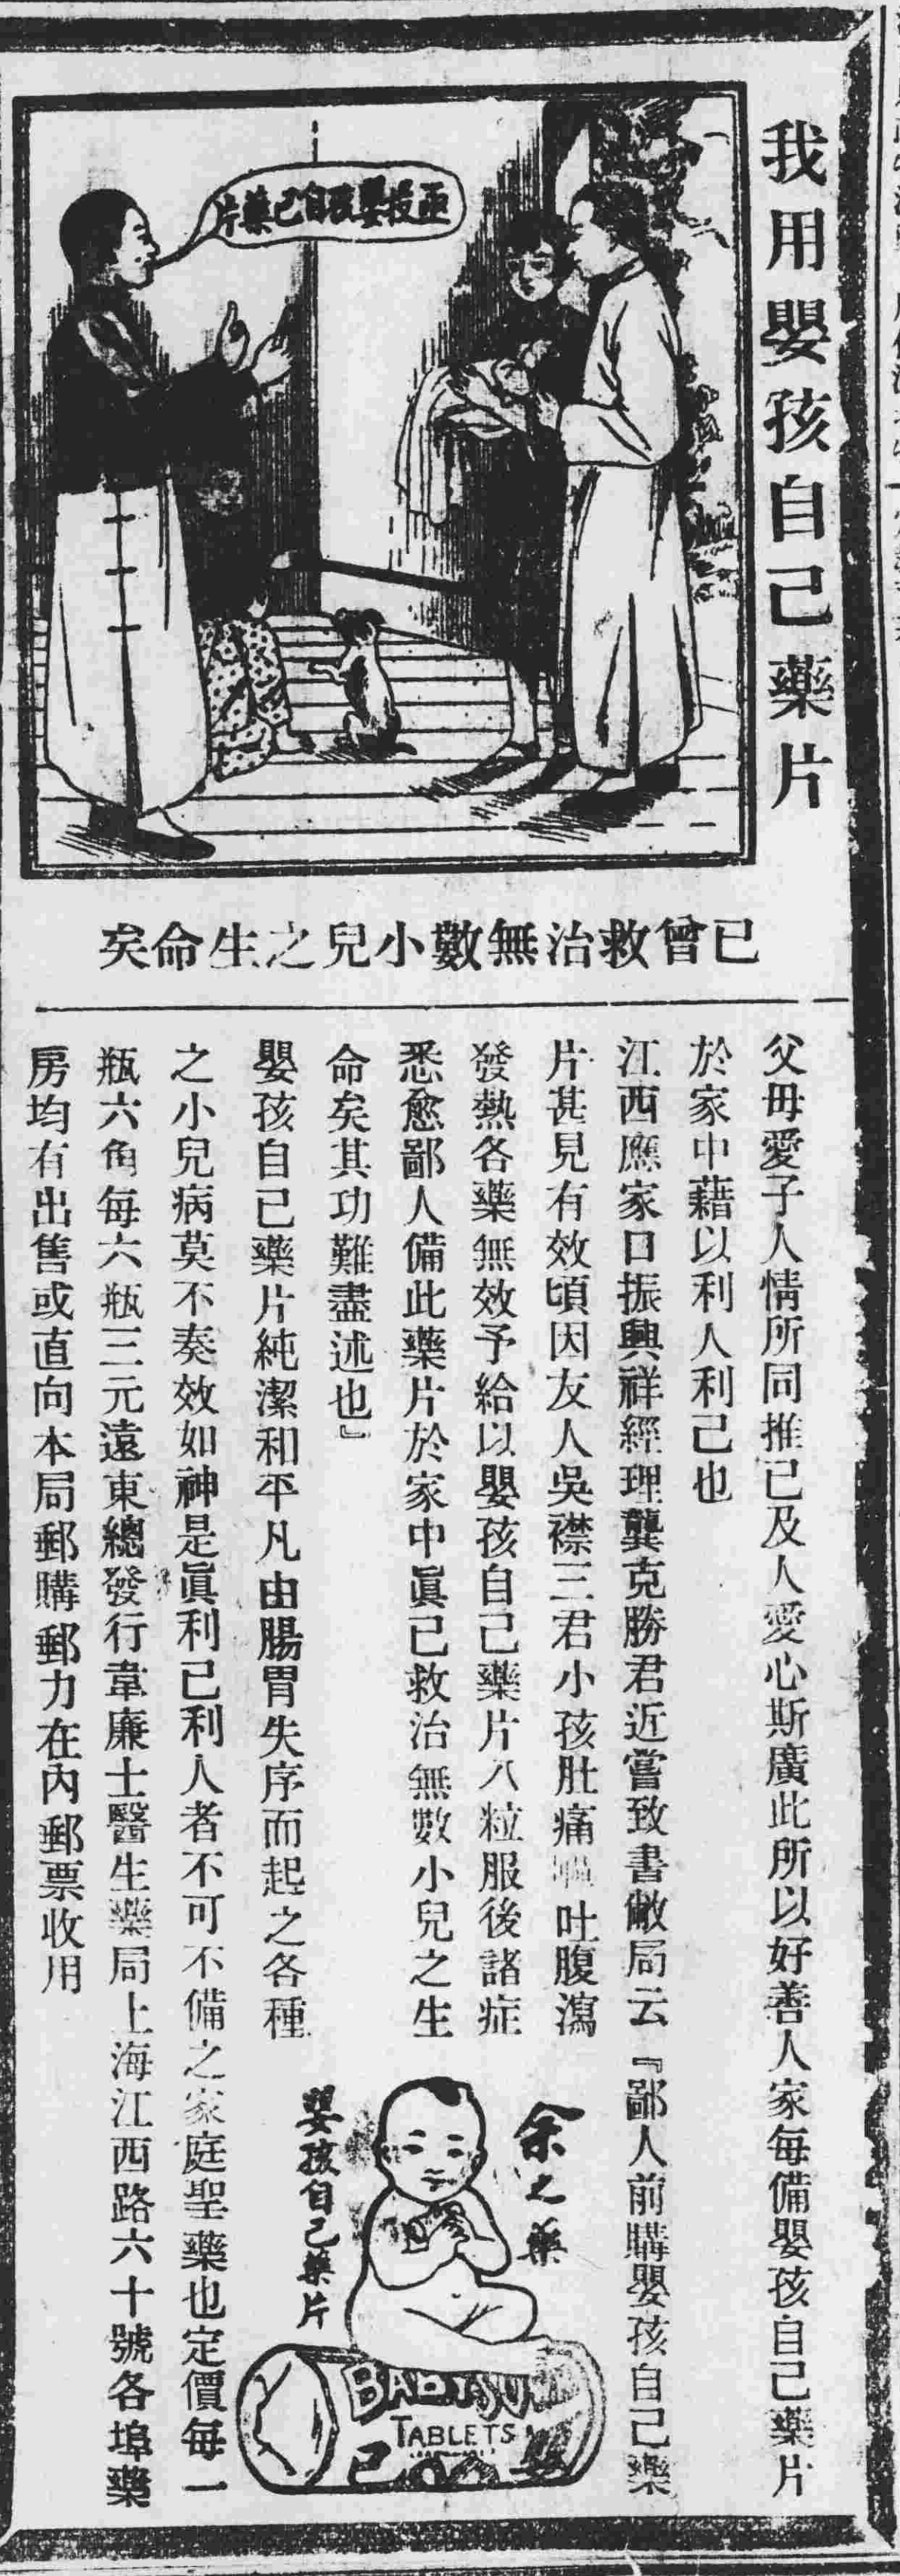 我用嬰孩自己藥片
嬰孩自己藥片
已曾救治無數小兒之生命矣
父母愛子人情所同推已及人愛心斯廣此所以好善人家每備嬰孩自己藥片
於家中藉以利人利己也
江西應家口振興祥經理龔克勝君近嘗致書敝局云『鄙人前購嬰孩自己藥
片甚見有效頃因友人吳襟三君小孩肚痛吐腹瀉
發熱各藥無效予給以嬰孩自己藥片八粒服後諸症
悉愈鄙人備此藥片於家中眞已救治無數小兒之生
命矣其功難盡述也』
嬰孩自己藥片純潔和平凡由腸胃失序而起之各種
之小兒病莫不奏效如神是眞利己利人者不可不備之家庭聖藥也定價每一
瓶六角每六瓶三元遠東總發行韋廉士醫生藥局上海江西路六十號各埠藥
房均有出售或直向本局郵購郵力在內郵票收用
余之藥
嬰孩自己藥片
TABLETS
己